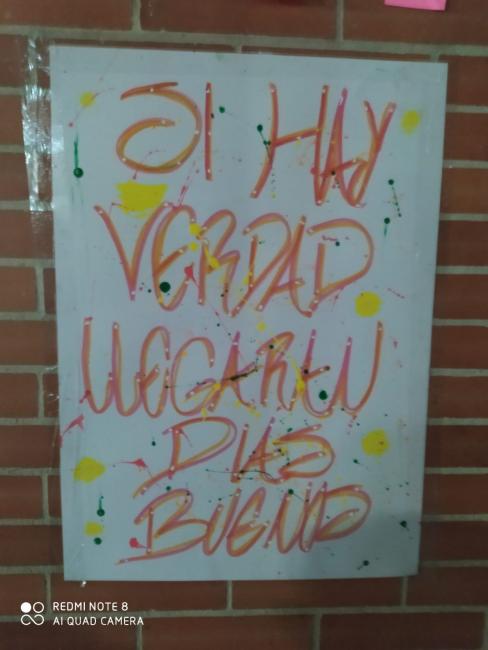 SI HAY
VERDAD
LLEGARÁN
DIAS
BUENOS
REDMI NOTE 8
AI QUAD CAMERA